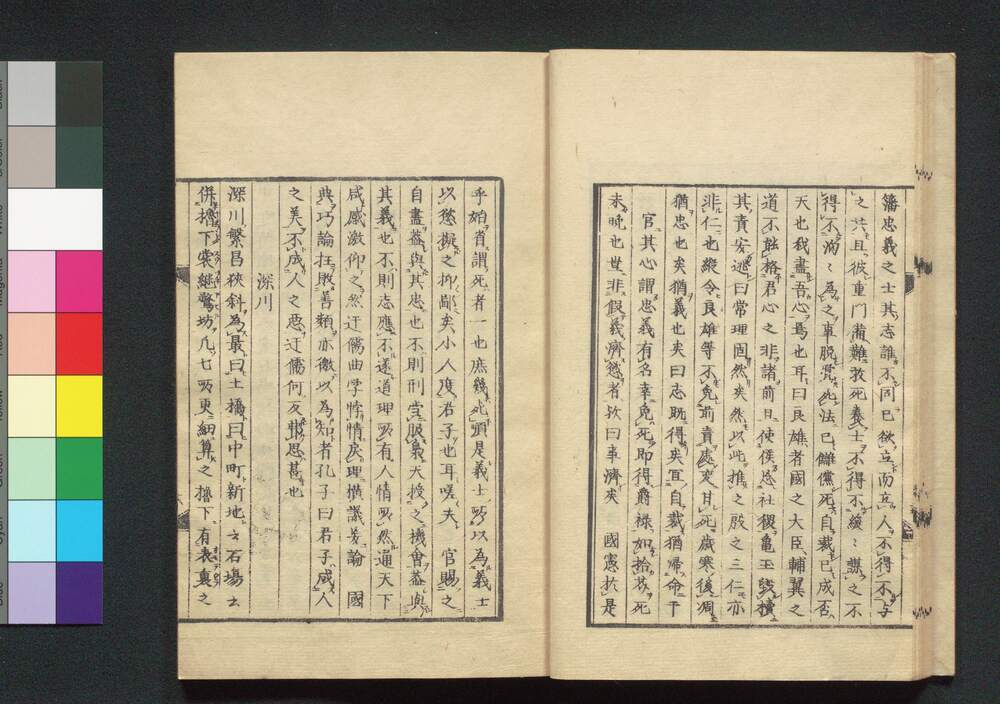 籓忠義之士其志誰不同已欲立而立人不得不与
之共且彼重門備難救死義士不得不緩緩謀之不
得不為之事脱党死法已雖僥死自裁已成否
天也我盡吾心焉也耳曰良雄者國之大臣輔翼之
道不能格君心之非諸前日使侯忘社稷亀玉毀櫝
其責安逃曰常理固然矣然以此推之殷之三仁亦
非仁也縦令良雄等不免前責處変甘死歳寒後凋
猶忠也矣猶義也矣曰志既得矣宜自裁猶帰命于
官其心謂忠義有名幸免死即得爵禄如拾芥死
未晩也豈非假義濟慾者欤曰事濟矣 國憲於是
乎始省謂死者一也庶幾死頭是義士所以為義士
以慾擬之抑鄙矣小人度君子也耳嗟夫 官賜之
自盡蓋與其忠也不則刑當服梟天授之機會蓋與
其義也不則志應不遂道理所有人情所然通天下
咸感激仰之然迂儒曲学悖情戻理横議芳論 國
典巧論抂敗善類亦徼以為知者孔子曰君子成人
之美不成人之悪迂儒何反聖思甚也
深川
深川繁昌狭斜為最曰土橋曰中町新地云石場云
併擔下裏継鷲坊凡七所更細算之擔下有表裏之